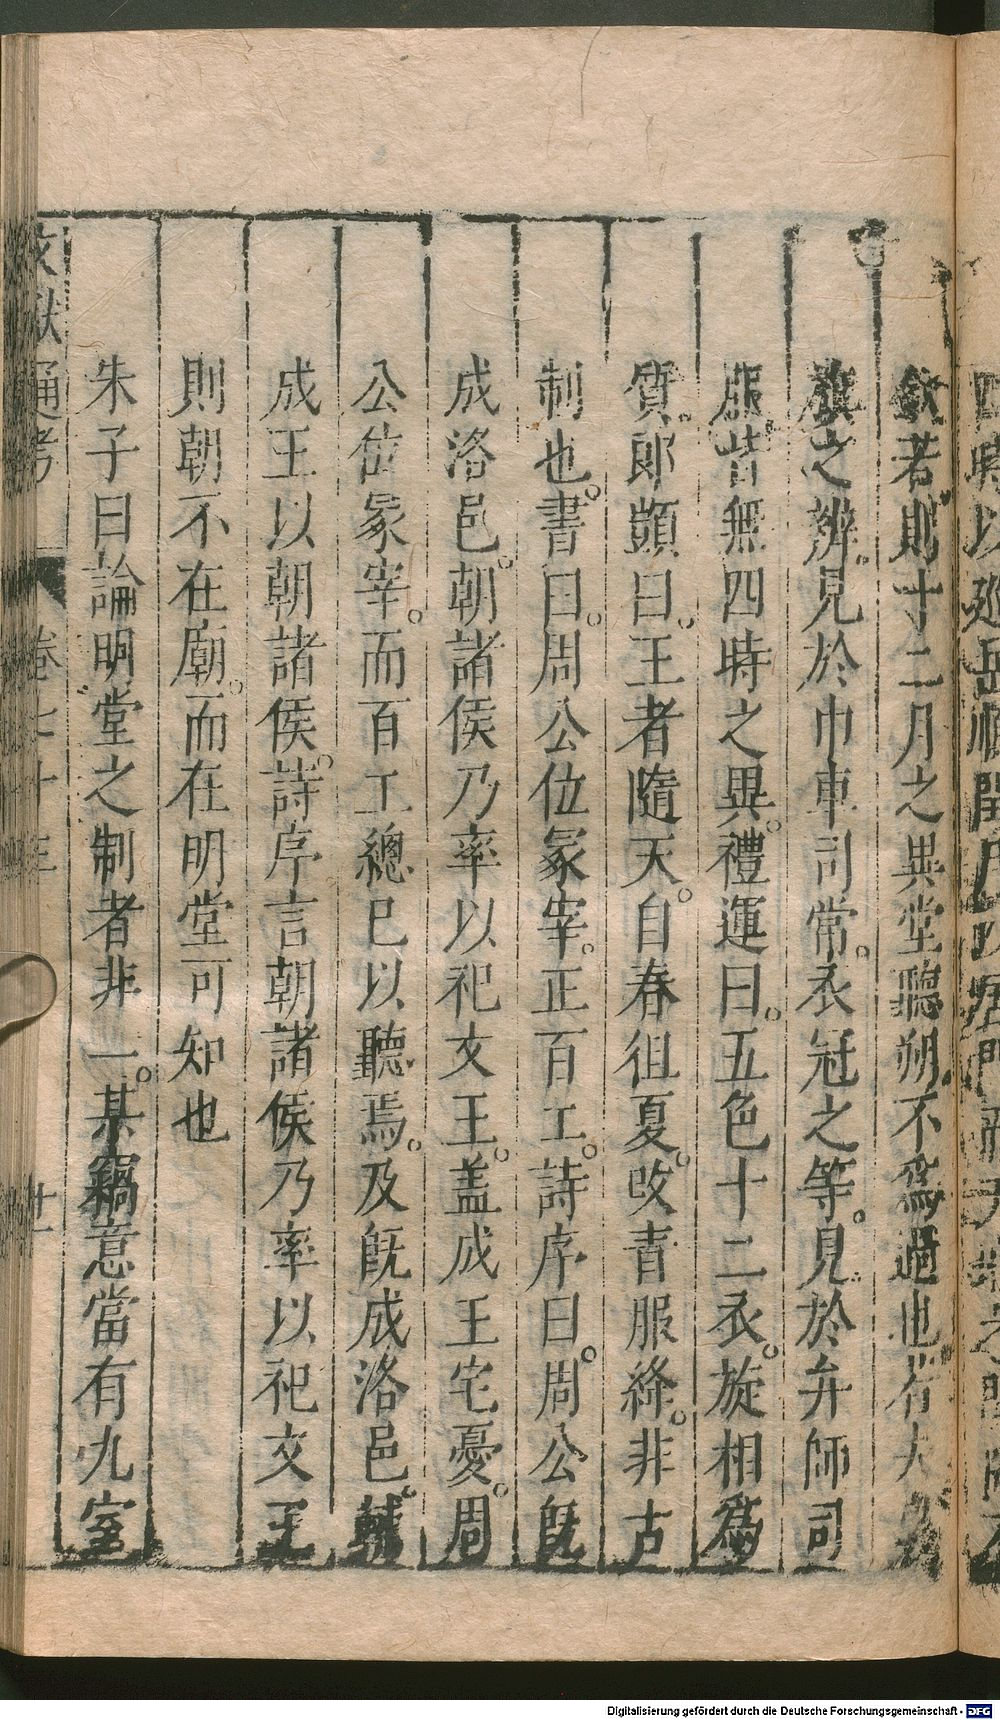 敘若則十二月之異堂聽朔不爲過也
旗之辨見於巾車司常衣冠之等見於弁師司
服皆無四時之異禮運曰五色十二衣旋相爲
質郎顗曰王者隨天自春徂夏改青服絳非古
制也書曰周公位冢宰正百工詩序曰周公旣
成洛邑朝諸侯乃率以祀文王盖成王宅憂周
公位冢宰而百工總已以聽焉及旣成洛邑輔
成王以朝諸侯詩序言朝諸侯乃率以祀文王
則朝不在廟而在明堂可知也
朱子曰論明堂之制者非一某竊意當有九室
文獻通考 卷七十三 廿一
Digitalisierung gefördert durch die Deutsche Forschungsgemeinschaft - DFG